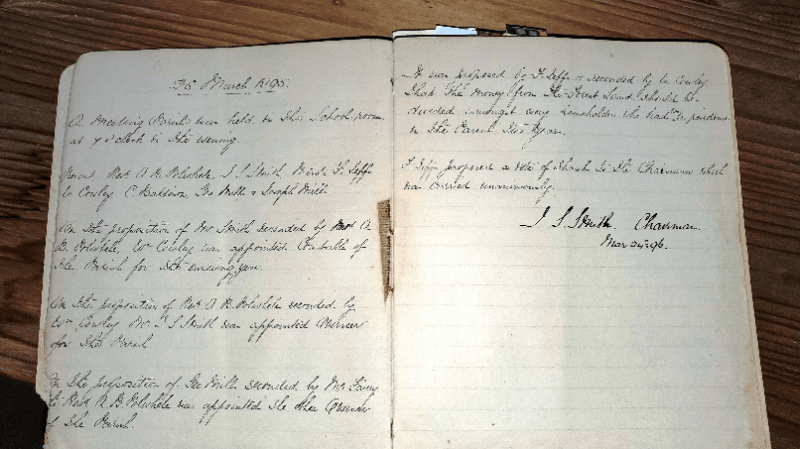 March 1895.
A Meeting was held in the School room
at 7 o'clock in the evening.
Present, Rev A B Polwhele, J. S. Smith, F. Jeffs
W Cowley C. Geo Mills & Joseph Mills
On the proposition of Mr Smith seconded by Rev A
B. Polwhele, Wm Cowley was appointed Constable of
the Parish for the ensuing year.
On the proposition of Rev A B. Polwhele seconded by
Wm Cowley Mr J S Smith was appointed Overseer
for this Parish
On the proposition of Geo Mills seconded by Mr
Rev A. B. Polwhele was appointed the other Overseer
of the Parish.
It was proposed by F. Jeffs & seconded by W Cowley
that the money from the Forest Land should be
divided amongst every householder who had residence
in the Parish
F Jeffs proposed a vote of thanks to the Chairman which
was carried unanimously.
J. S. Smith. Chairman
Mar 96.